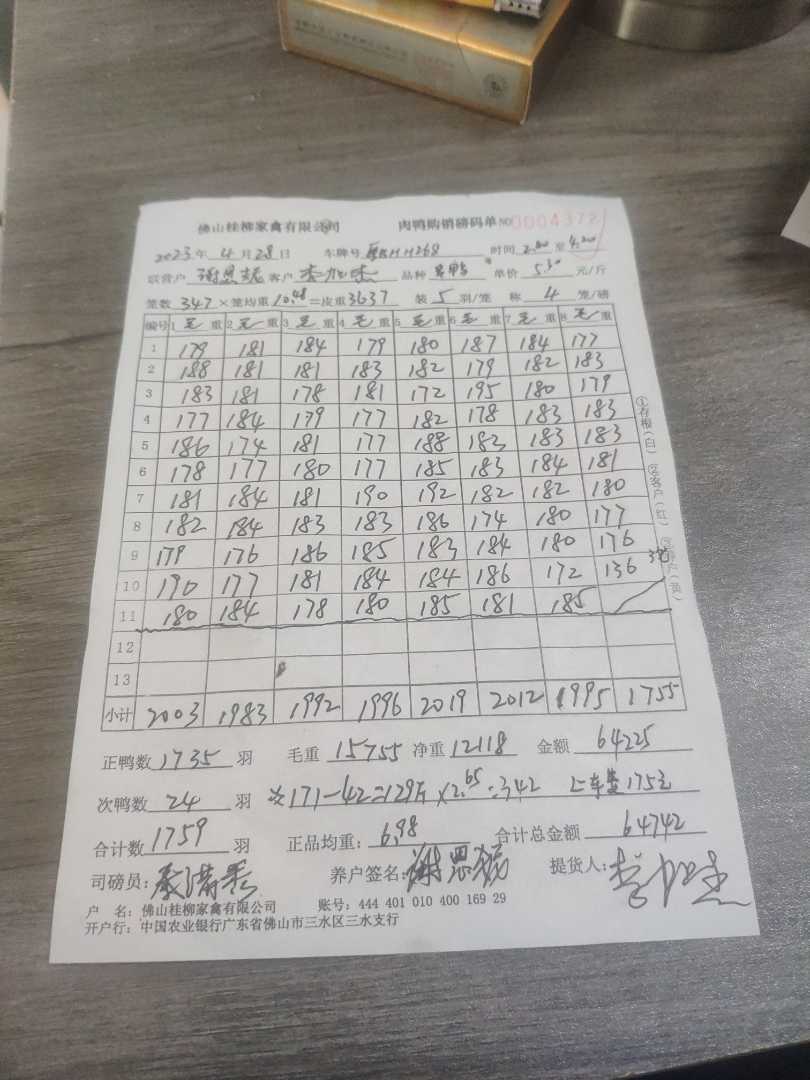 佛山桂柳家禽有限公司 肉鸭购销磅码单 NO 0004372
2023年4月28日 车牌号 H1268 时间 2.00 至 4.20
联营户 谢思 客户 李 品种 鸭 单价 5.30 元/斤
笼数 347 ×笼均重 10.48 =皮重 3637 装 5 羽/笼 称 4 笼/磅
编号 1 毛 重 2 毛 重 3 毛 重 4 毛 重 5 毛 重 6 毛 重 7 毛 重 8 毛 重
1 179 181 184 179 180 187 184 177
2 188 181 181 183 182 179 182 183
3 183 181 178 181 172 195 180 179
4 177 184 179 177 182 178 183 183
5 186 174 181 177 188 183 183 183
6 178 177 180 177 185 183 184 181
7 181 184 181 190 192 182 182 180
8 182 184 183 183 186 174 180 177
9 179 176 186 185 183 184 180 176
10 190 177 181 184 184 186 172 136 3笼
11 180 184 178 180 185 181 185
12
13
小计 2003 1983 1992 1996 2019 2012 1995 1755
①存根(白) ②客户(红) (黄)
正鸭数 1735 羽 毛重 15755 净重 12118 金额 64225
次鸭数 24 羽 次171-42=129斤×2.65=342 上车费175元
合计数 1759 羽 正品均重: 6.98 合计总金额 64742
司磅员: 养户签名: 谢思 提货人: 李
户 名: 佛山桂柳家禽有限公司 账号: 444 401 010 400 169 29
开户行: 中国农业银行广东省佛山市三水区三水支行